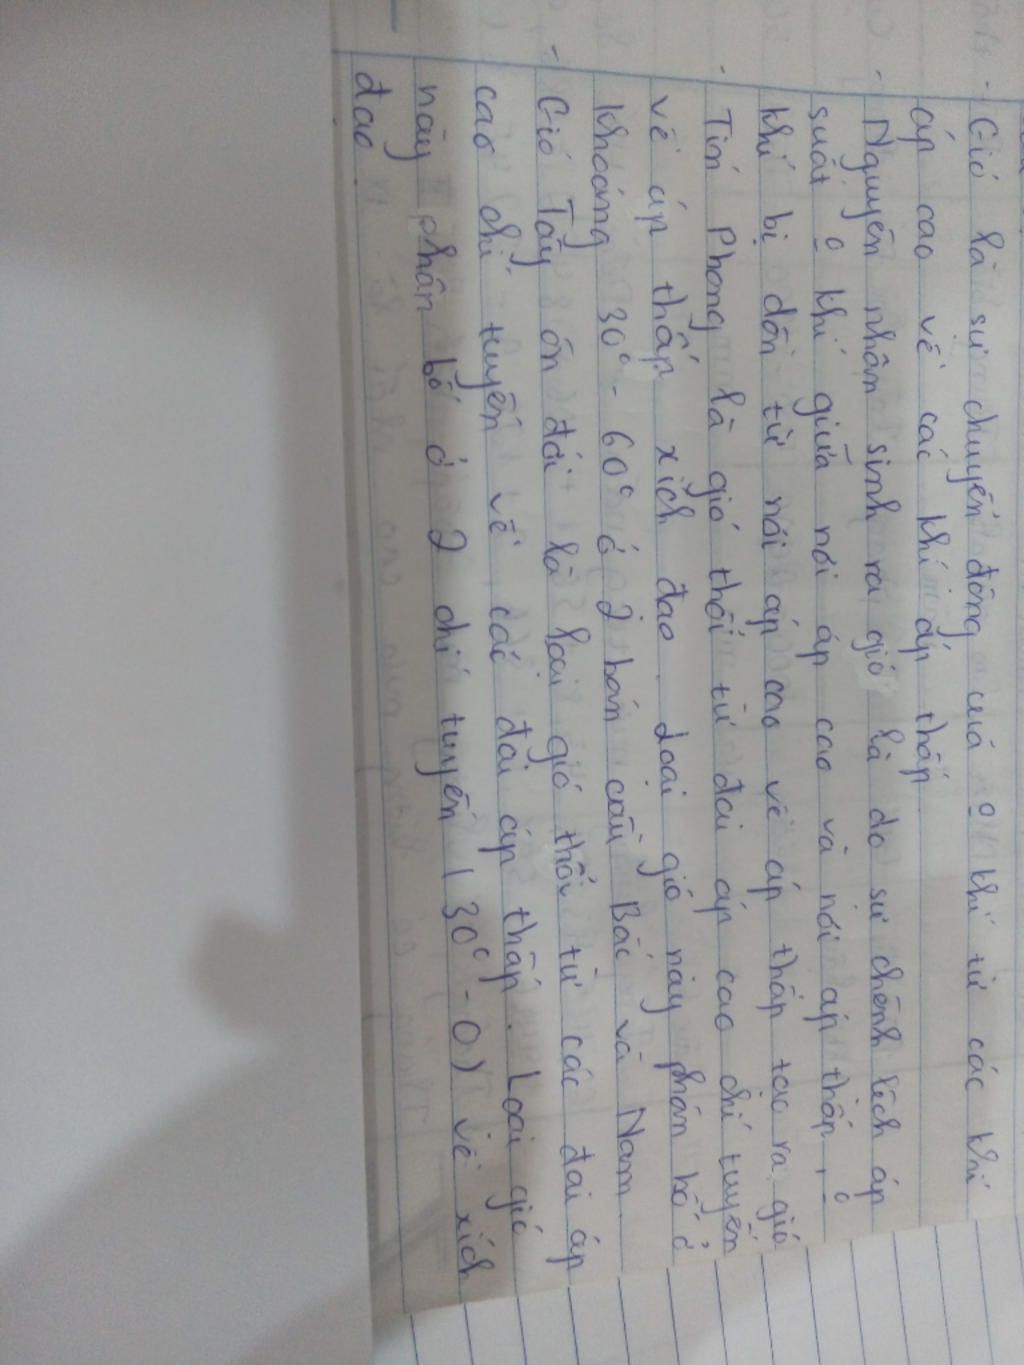 - Gió là sự chuyển động của o khí từ các khí
áp cao về các khí áp thấp
- Nguyên nhân sinh ra gió là do sự chênh lệch áp
suất o khí giữa nơi áp cao và nơi áp thấp, o
khí bị dồn từ nơi áp cao về áp thấp tạo ra gió
- Tín phong là gió thổi từ đai áp cao chí tuyến
về áp thấp xích đạo. Loại gió này phân bố ở
khoảng 30° - 60° ở 2 bán cầu Bắc và Nam.
- Gió Tây ôn đới là loại gió thổi từ các đai áp
cao chí tuyến về các đại áp thấp. Loại gió
này phân bố ở 2 chí tuyến (30° - 0) về xích
đạo.